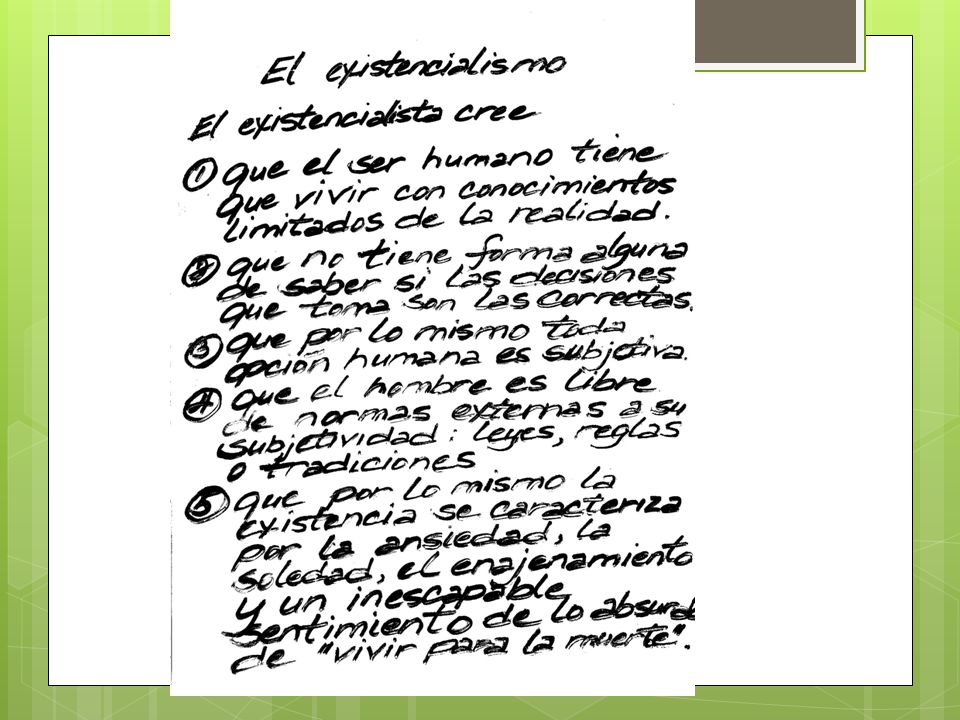 El existencialismo
El existencialista cree
① que el ser humano tiene
que vivir con conocimientos
limitados de la realidad.
② que no tiene forma alguna
de saber si las decisiones
que toma son las correctas.
③ que por lo mismo toda
opción humana es subjetiva.
④ que el hombre es libre
de normas externas a su
subjetividad: leyes, reglas
o tradiciones
⑤ que por lo mismo la
existencia se caracteriza
por la ansiedad, la
soledad, el enajenamiento
y un inescapable
sentimiento de lo absurdo
de "vivir para la muerte".